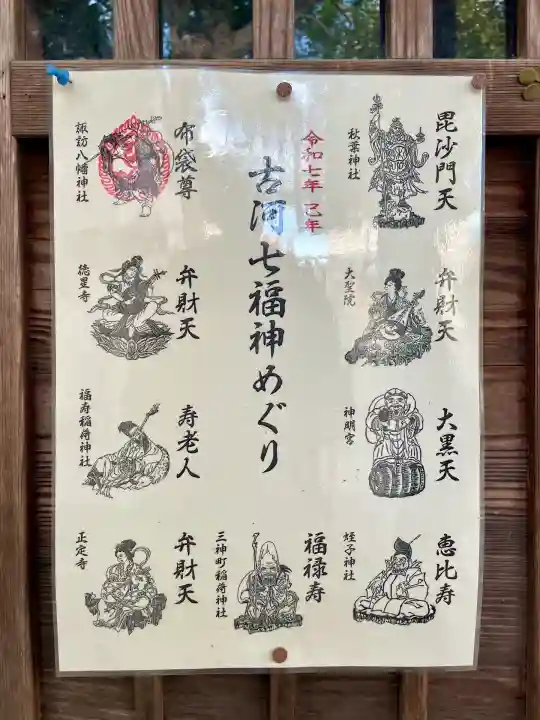 毘沙門天
秋葉神社
弁財天
大聖院
大黒天
神明宮
恵比寿
蛭子神社
令和七年 己年
古河七福神めぐり
福禄寿
三神町稲荷神社
布袋尊
諏訪八幡神社
弁財天
徳星寺
寿老人
福寿稲荷神社
弁財天
正定寺